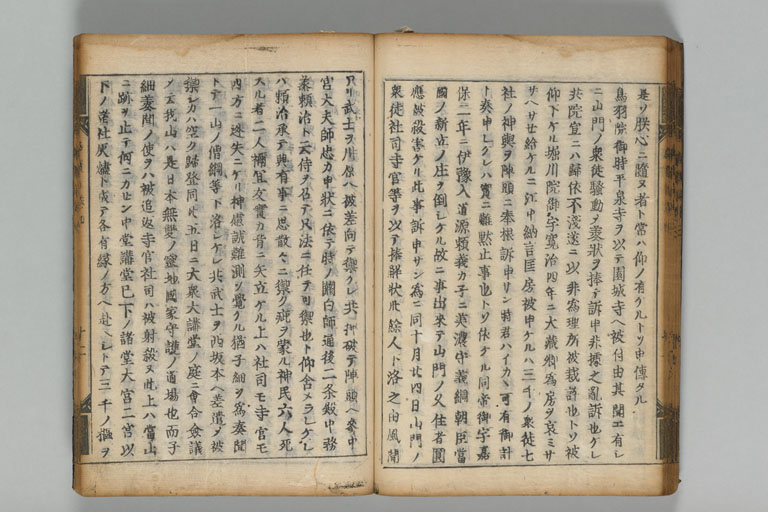 是ソ朕心ニ隨ヌ者ト常ハ仰ノ有ケルトソ申傳タル
鳥羽院御時平泉寺ヲ以テ園城寺ヘ被付由其聞エ有シ
ニ山門ノ衆徒騒動ヲ奏状ヲ捧テ訴申非據之亂訴也ケレ
共院宣ニハ歸依不淺遂ニ以非為理所被裁許也トソ被
仰下ケル堀川院御宇寛治四年ニ大藏卿為房ヲ哀ミサ
サヘサセ給ケルニ江中納言匡房被申ケルハ三千ノ衆徒七
社ノ神輿ヲ陣頭ニ奉振訴申サン時君ハイカヽ可有御計
ト奏申シケレハ實ニ難黙止事也トソ依ケル同帝御宇嘉
保二年ニ伊豫入道源頼義カ子ニ美濃守義綱朝臣當
國ノ新立ノ庄ヲ倒シケル故ニ事出來テ山門ノ久住者圓
應被殺害ケリ此事訴申サン為ニ同十月廿四日山門ノ
衆徒社司寺官等ヲ以テ捧解状此絵人ト洛之由風聞
アリ武士ヲ川原ヘ被差向テ禦レ共押破テ陣頭ヘ参中
宮大夫師忠カ申状ニ依テ時ノ關白師通後二条殿中務
丞頼治ト云侍ヲ召テ只法ニ任テ可禦也ト仰含メラレケレ
ハ頼治承テ興有事ニ思散々ニ禦ク疵ヲ蒙ル神民六人死
スル者二人禰宜友實カ背ニ矢立ケル上ハ社司モ寺官モ
四方ニ迷失ニケリ神慮誠難測ソ覺ケル猶子細ヲ為奏聞
トテ一山ノ僧綱等下洛シケレ共武士ヲ西坂本ヘ差遣メ被
禦シカハ空ク歸登同廿五日ニ大衆大講堂ノ庭ニ會合僉議
メ云我山ハ是日本無雙ノ靈地國家守護ノ道場也而子
細奏聞ノ使ヲハ被追返寺官社司ハ被射殺ヌ此上ハ當山
ニ跡ヲ止テ何ニカセン中堂講堂已下ノ諸堂大宮二宮以
下ノ諸社灰燼ト成テ各有縁ノ方ヘ赴ヘシトテ三千ノ樞ヲ